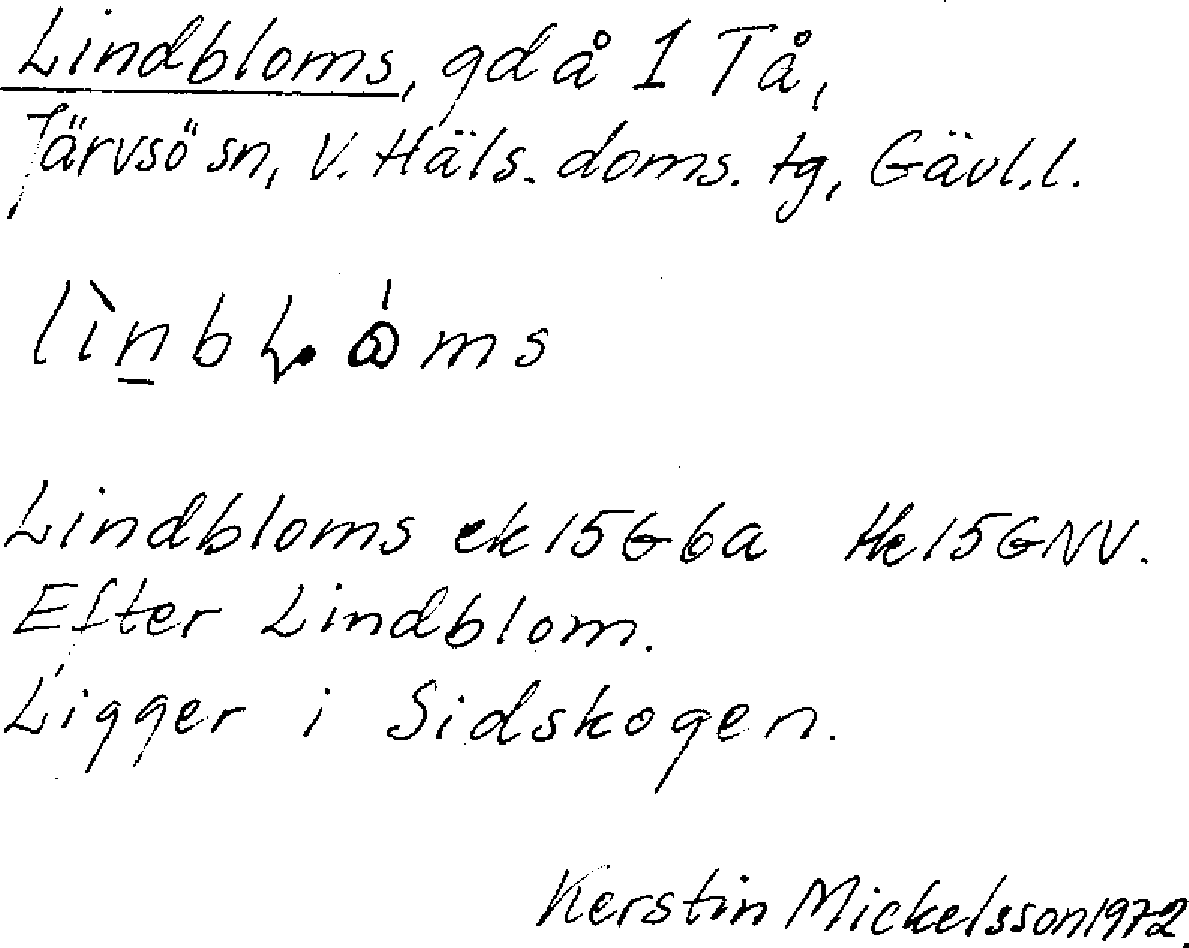 Lindbloms, gd å 1 Tå,
Järvsö sn, V. Häls. doms. tg, Gävl.l.
Lindbloms ek 15G6a tk 15GNV.
Efter Lindblom.
Ligger i Sidskogen.
Kerstin Mickelsson 1972.